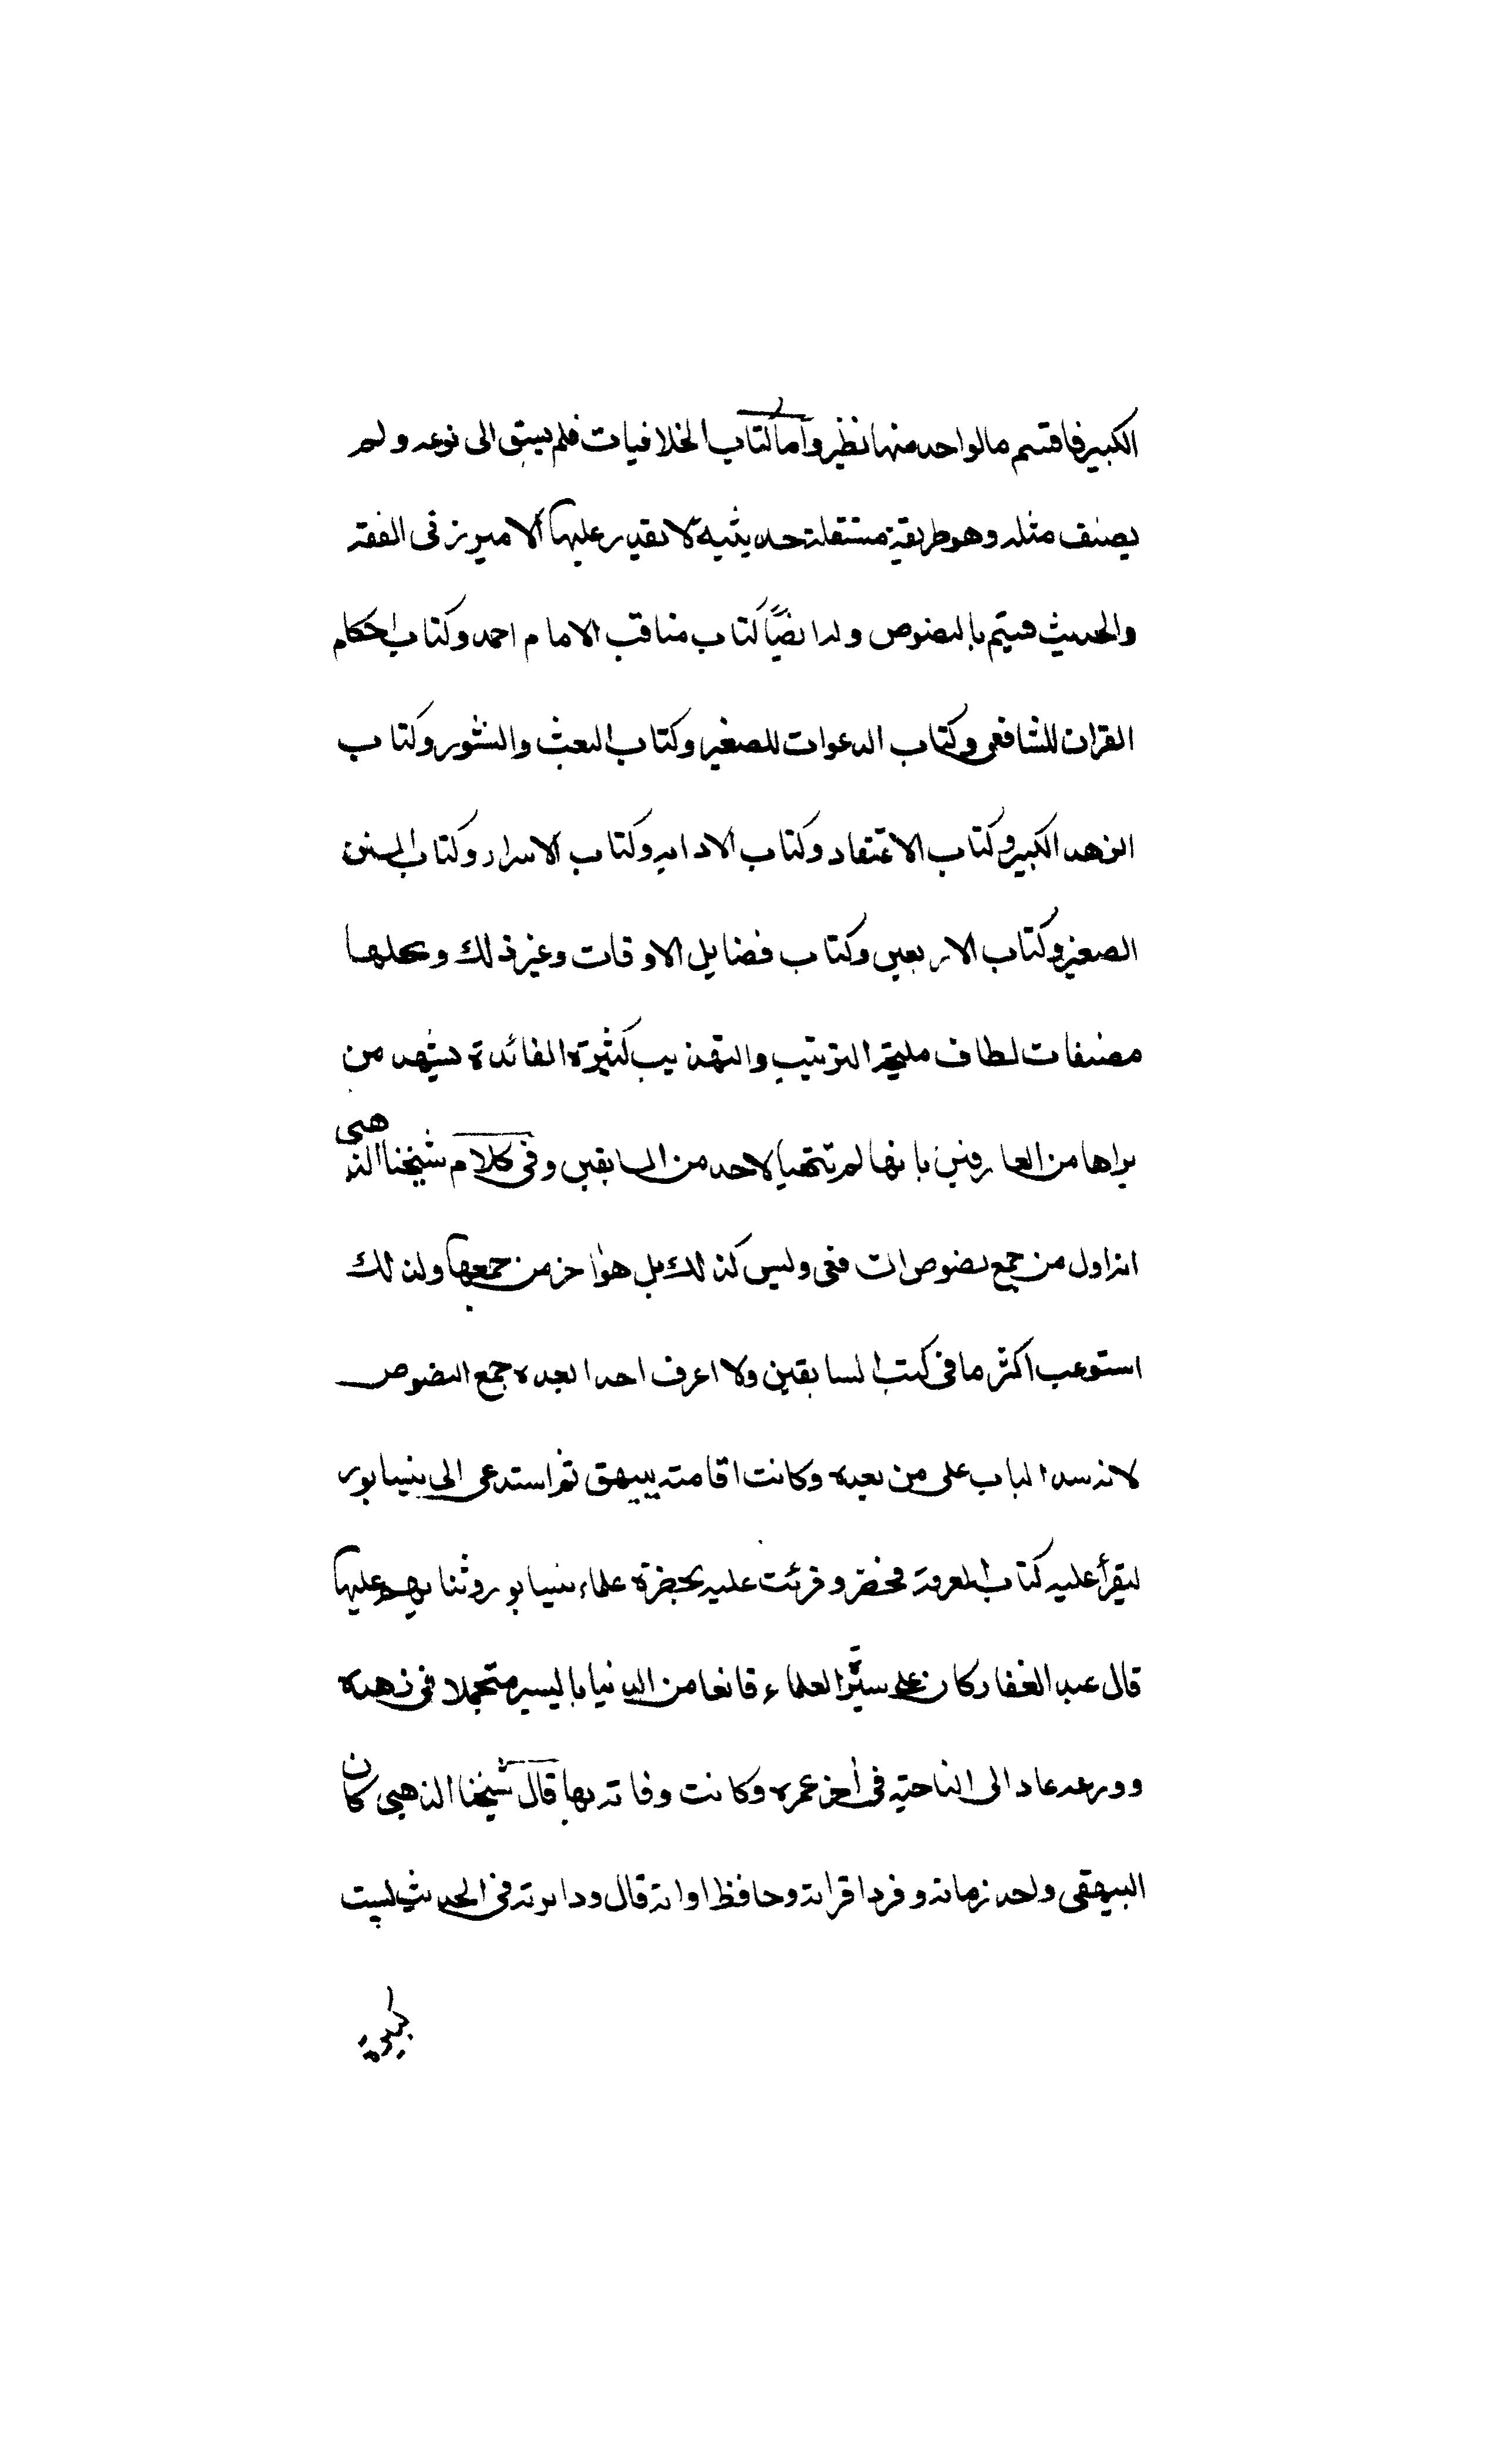 الكبير فاقسم مالواحد منها نظير وأما كتاب الخلافيات فلم يسبق الى نوعه ولم
يصنف مثله وهو طريقة مستقلة حديثية لا يقدر عليها الا مبرز فى الفقه
والحديث قيم بالنصوص وله ايضًا كتاب مناقب الامام احمد وكتاب احكام
القران للشافعى وكتاب الدعوات للصغير وكتاب البعث والنشور وكتاب
الزهد الكبير وكتاب الاعتقاد وكتاب الاداب وكتاب الاسرار وكتاب السنن
الصغير وكتاب الاربعين وكتاب فضايل الاوقات وغير ذلك وكلها
مصنفات لطاف مليحة الترتيب والتهذيب كثيرة الفائدة يشهد من
يراها من العارفين بانها لم تتهيا لاحد من السابقين وفى كلام شيخنا الذهبى
انه اول من جمع نصوص الشافعى وليس كذلك بل هو اخر من جمعها ولذلك
استوعب اكثر ما فى كتب السابقين ولا اعرف احدا بعده جمع النصوص
لانه سد الباب على من بعده وكانت اقامته ببيهق ثم استدعى الى نيسابور
ليقرأ عليه كتاب المعرفة فحضر وقرئت عليه بحضرة علماء نيسابور وثنائهم عليها
قال عبد الغفار كان على سيرة العلماء قانعا من الدنيا باليسير متجملا فى زهده
وورعه عاد الى الناحية فى أخر عمره وكانت وفاته بها قال شيخنا الذهبى كان
البيهقى واحد زمانه وفرد اقرانه وحافظ اوانه قال ودايرته فى الحديث ليست
كبيرة